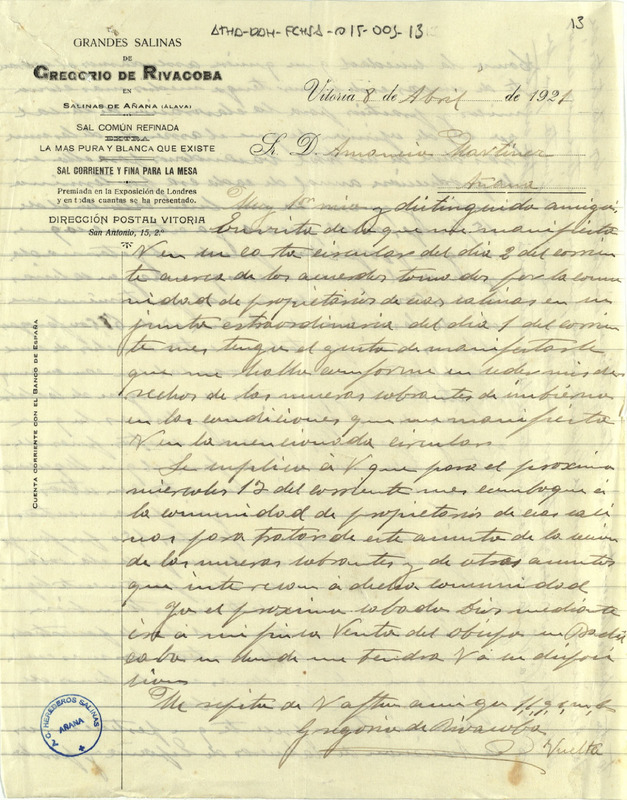 ATHA-DAH-FCHSA-015-003-13
13
GRANDES SALINAS
DE
GREGORIO DE RIVACOBA
EN
SALINAS DE AÑANA (ALAVA)
SAL COMÚN REFINADA
EXTRA
LA MAS PURA Y BLANCA QUE EXISTE
SAL CORRIENTE Y FINA PARA LA MESA
Premiada en la Exposición de Londres
y en todas cuantas se ha presentado.
DIRECCIÓN POSTAL VITORIA
San Antonio, 15, 2.º
CUENTA CORRIENTE CON EL BANCO DE ESPAÑA
Vitoria 8 de Abril de 1921
Sr. D. Amancio Martinez
Añana
Muy Sr mio y distinguido amigo:
En vista de lo que me manifiesta
V en su carta circular del dia 2 del corrien
te acerca de los acuerdos tomados por la comu
nidad de propietarios de esas salinas en su
junta estraordinaria del dia 1 del corrien
te mes tengo el gusto de manifestarle
que me hallo conforme en ceder mis de
rechos de las mueras sobrantes de imbierno
en las condiciones que me manifiesta
V en la mencionada circular
Le suplico á V que para el proximo
miercoles 13 del corriente mes comboque á
la comunidad de propietarios de esas sali
nas para tratar de este asunto de la
de las mueras sobrantes y de otros asuntos
que interesan á dicha comunidad
Yo el proximo sabado Dios mediante
iré á mi finca Venta del obispo en
en donde me tendra V á su disposi
cion
Se repite de V affmo amigo
Gregorio de Rivacoba
Vuelta
A.C. HEREDEROS SALINAS
AÑANA